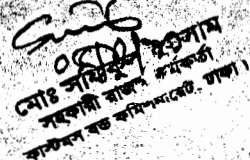 মোঃ সফিকুল ইসলাম
সহকারী রাজস্ব কর্মকর্তা
কাস্টমস বন্ড কমিশনারেট, ঢাকা।